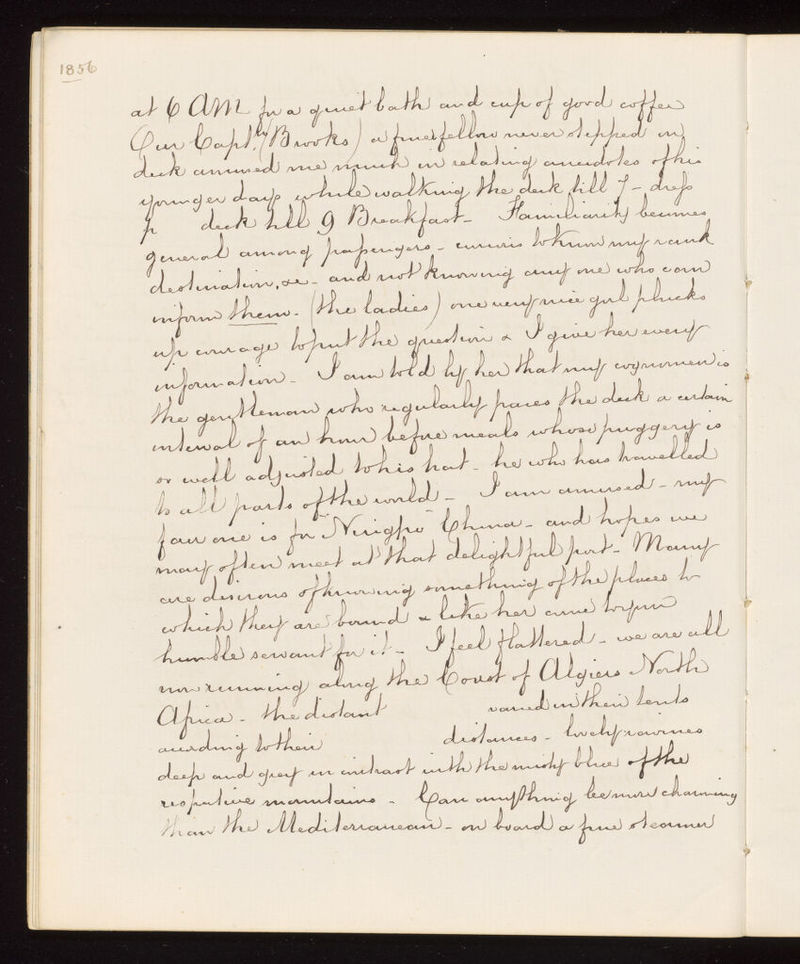 1856
at 6 AM for a quiet bath and cup of good coffee
Our Capt.n (Brooks) a finer fellow never stepped on
deck amused me much in relating anecdotes of his
younger days while walking the deck till 7 - dress
p deck till 9 Breakfast - Familiarity becomes
general among passengers - curious to know my rank
destination, &c - and not knowing any one who can
inform them - (the ladies) one very nice girl plucks
up courage to put the question & I give her every
information - I am told by her that my cognomen is
the gentleman who regularly paces the deck a certain
interval of an hour before meals whose puggery is
so well adjusted to his hat - he who has travelled
to all parts of the world - I am amused - my
fair one is for "Ningpo" China - and hopes we
may often meet at that delightful port - Many
are desirous of knowing something of the places to
which they are bound & like her come to your
humble servant for it - I feel flattered - we are all
now running along the Coast of Algiers North
Africa - the distant varied in their tents
according to their distances - lovely ravines
deep and grey in contrast with the misty blue of the
respective mountains - Can anything be more charming
than the Mediterranean - on board a fine steamer